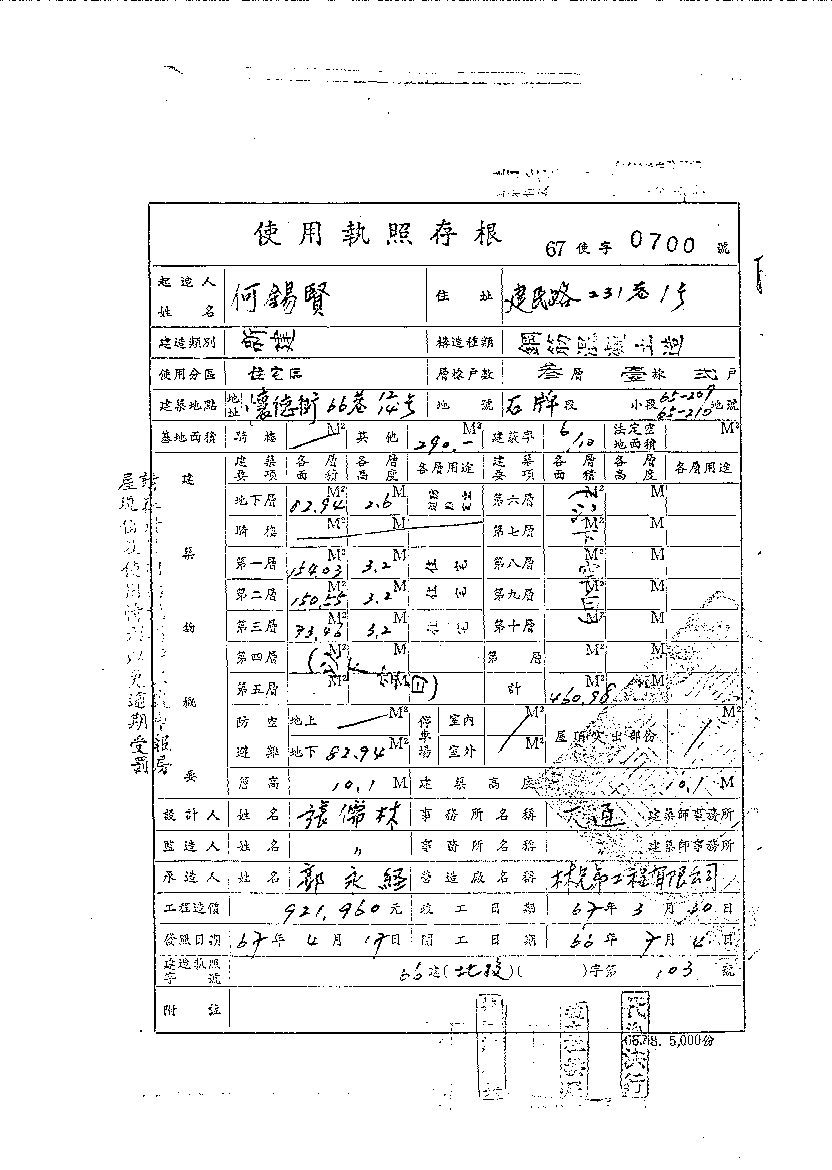 使用執照存根 67使字 0700 號
起造人姓名 何錫賢 住址 建民路231巷1号
建造類別 構造種類 鋼筋混凝土造
使用分區 住宅區 層棟戶數 叁層 壹棟 弍戶
建築地點 地址 懷德街66巷12 14号 地號 石牌段 小段65-209 65-210地號
基地面積 騎樓 M² 其他 290.- M² 建蔽率 6/10 法定空地面積 M²
建築要項 各層面積 各層高度 各層用途 建築要項 各層面積 各層高度 各層用途
建築物概要
地下層 82.94 M² 2.6 M 第六層 M² M
騎樓 M² M 第七層 M² M
第一層 154.03 M² 3.2 M 住宅 第八層 M² M
第二層 150.55 M² 3.2 M 住宅 第九層 M² M
第三層 73.46 M² 3.2 M 住宅 第十層 M² M
第四層 M² M 第 層 M² M
第五層 M² M 計 460.98 M² M
防空避難 地上 M² 停車場 室內 M² 屋頂突出部份 M²
地下 82.94 M² 室外 M²
簷高 10.1 M 建築高度 10.1 M
設計人 姓名 張儒林 事務所名稱 大通 建築師事務所
監造人 姓名 〃 事務所名稱 〃 建築師事務所
承造人 姓名 郭永經 營造廠名稱 林兄弟工程有限公司
工程造價 921,960元 竣工日期 67年3月30日
發照日期 67年4月17日 開工日期 66年7月4日
建造執照字號 66建(北投)( )字第 103 號
附註
屋現值及使用情形以免逾期受罰
代為決行
66.8. 5,000份